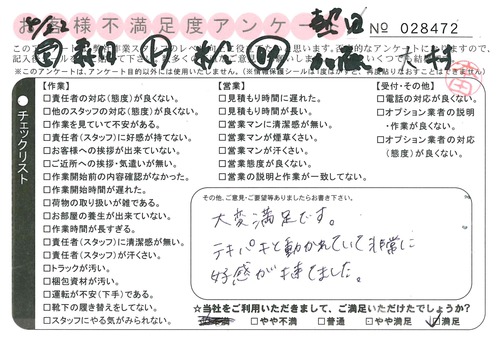 お客様不満足度アンケート
No 028472
大村
※このアンケートは、アンケート目的以外には使用いたしません。
チェックリスト
【作業】
□責任者の対応(態度)が良くない。
□他のスタッフの対応(態度)が良くない。
□作業を見ていて不安がある。
□責任者(スタッフ)に好感が持てない。
□お客様への挨拶が出来ていない。
□ご近所への挨拶・気遣いが無い。
□作業開始前の内容確認がなかった。
□作業開始時間が遅れた。
□荷物の取り扱いが雑である。
□お部屋の養生が出来ていない。
□作業時間が長すぎる。
□責任者(スタッフ)に清潔感が無い。
□責任者(スタッフ)が汗くさい。
□トラックが汚い。
□梱包資材が汚い。
□運転が不安(下手)である。
□靴下の履き替えをしてない。
□スタッフにやる気がみられない。
【営業】
□見積もり時間に遅れた。
□見積もり時間が長い。
□営業マンに清潔感が無い。
□営業マンが煙草くさい。
□営業マンが汗くさい。
□営業態度が良くない。
□営業の説明と作業が一致してない。
【受付・その他】
□電話の対応が良くない。
□オプション業者の説明
・作業が良くない。
□オプション業者の対応
(態度)が良くない。
その他、ご意見・ご要望等ありましたらお書き下さい。
大変満足です。
テキパキと動かれていて非常に
好感が持てました。
☆当社をご利用いただきまして、ご満足いただけたでしょうか?
□不満 □やや不満 □普通 □やや満足 □満足